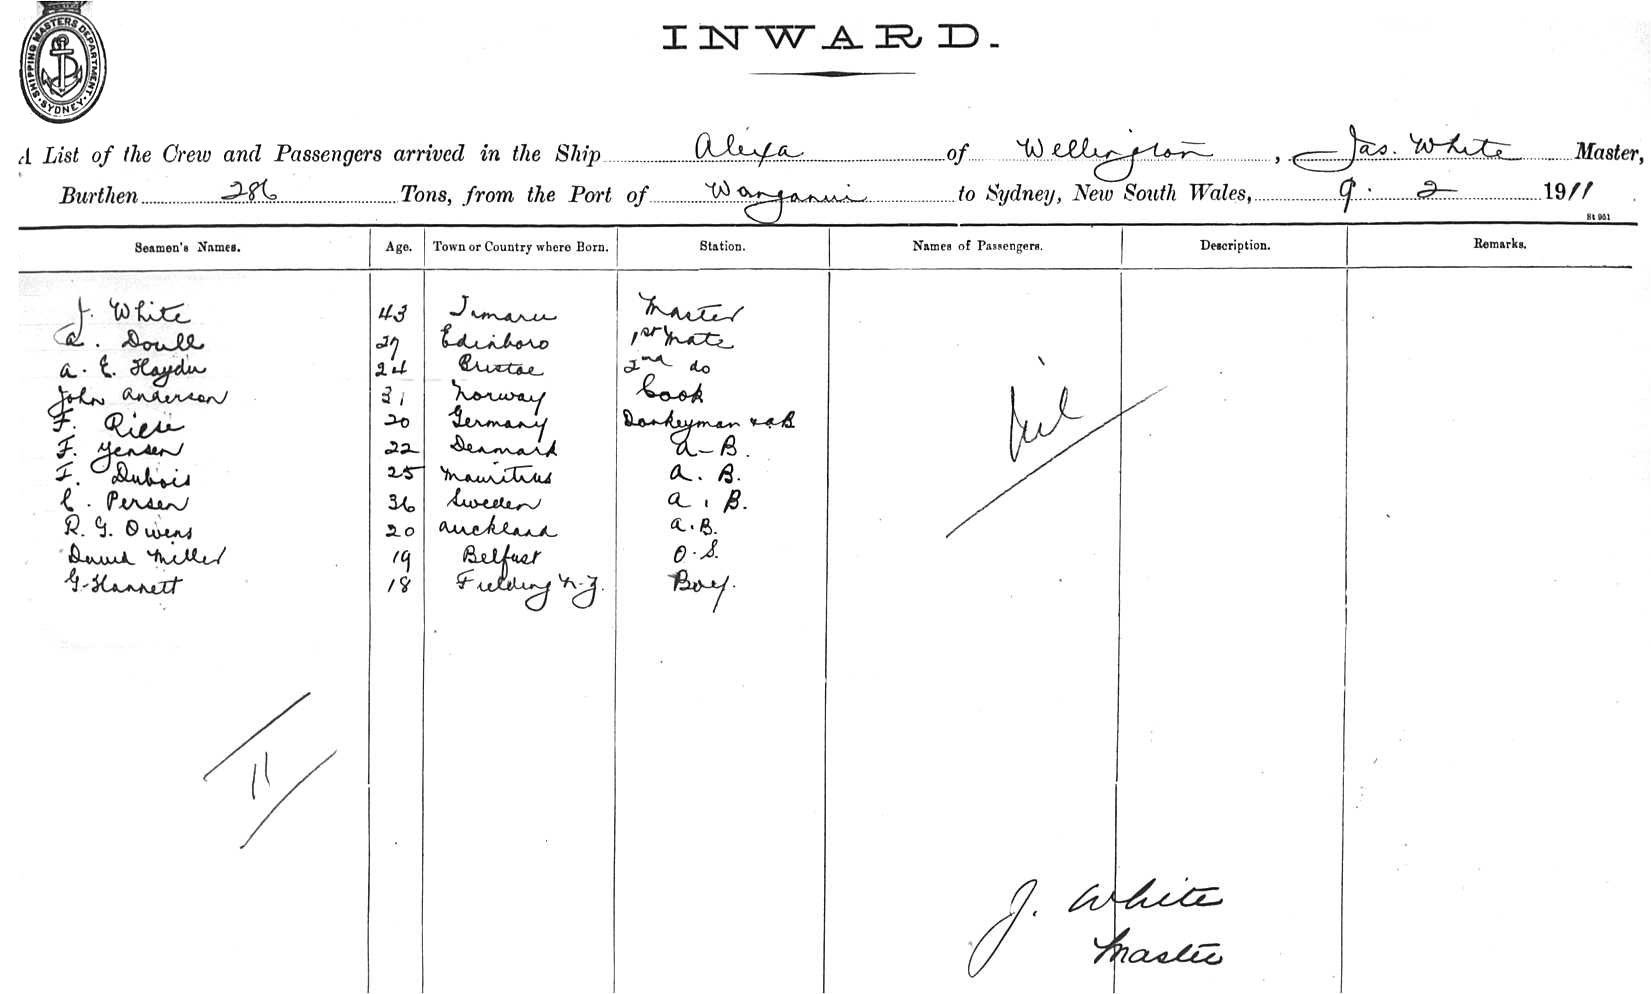 SHIPPING MASTERS DEPARTMENT. SYDNEY.
INWARD.
A List of the Crew and Passengers arrived in the Ship Alexa of Wellington, Jas. White Master,
Burthen 286 Tons, from the Port of Wanganui to Sydney, New South Wales, 9. 2 1911
St 951
Seamen's Names. Age. Town or Country where Born. Station. Names of Passengers. Description. Remarks.
J. White 43 Timaru Master
Doull 27 Edinboro 1st Mate
A. E. Haydn 24 2nd do
John Anderson 31 Norway Cook
F. Riese 20 Germany Donkeyman & AB
F. Jensen 22 Denmark A-B.
F. Dubois 25 Mauritius A. B.
C. Persen 36 Sweden A. B.
R. G. Owens 20 Auckland A.B.
David Miller 19 Belfast O.S.
G. Hannett 18 Fielding N.Z. Boy.
Nil
11
J. White
Master